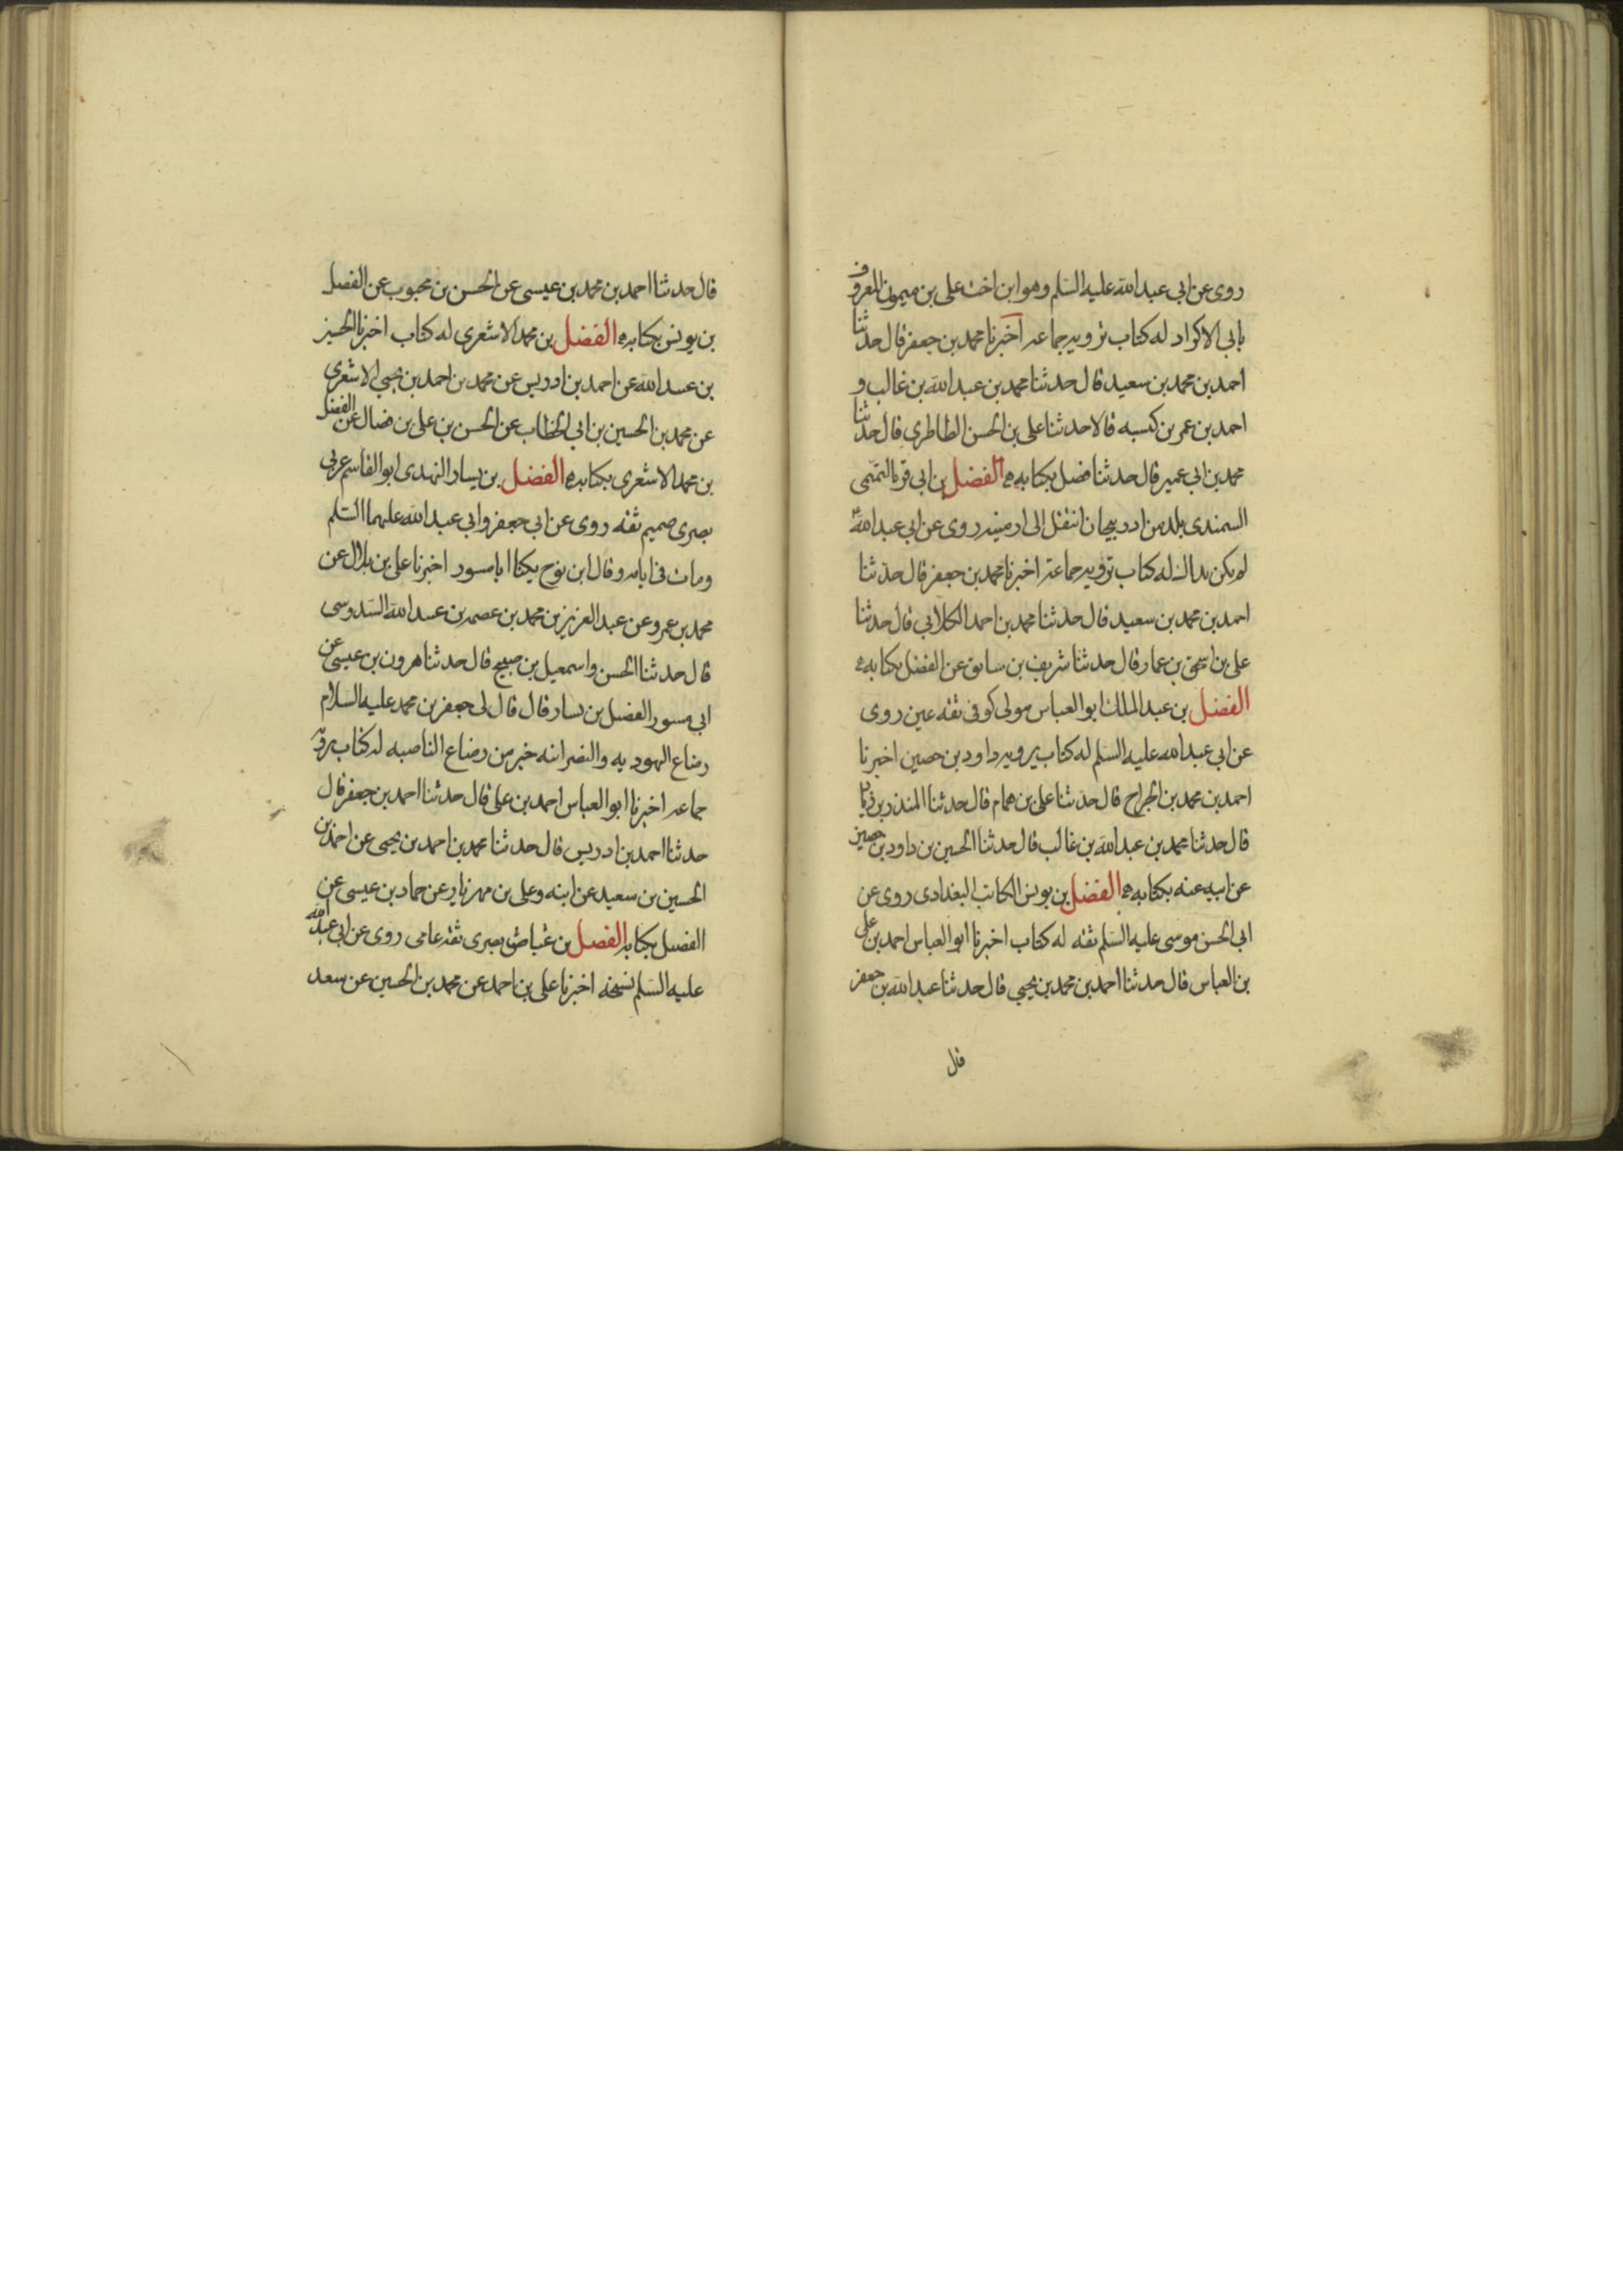 روى عن ابى عبد الله عليه السلم وهو ابن اخت على بن ميمون المعروف
بابى الاكراد له كتاب ترويه جماعه اخبرنا محمد بن جعفر قال حدثنا
احمد بن محمد بن سعيد قال حدثنا محمد بن عبد الله بن غالب و
احمد بن عمر بن كيسبه قالا حدثنا على بن الحسن الطاطرى قال حدثنا
محمد بن ابى عمير قال حدثنا فضل بكتابه الفضل بن ابى قره التميمى
السمندى بلد من اذربيجان انتقل الى ارمينيه روى عن ابى عبد الله
لم يكن بذاك له كتاب ترويه جماعة اخبرنا محمد بن جعفر قال حدثنا
احمد بن محمد بن سعيد قال حدثنا محمد بن احمد الكلابى قال حدثنا
على بن اسحق بن عمار قال حدثنا شريف بن سابق عن الفضل بكتابه
الفضل بن عبد الملك ابو العباس مولى كوفى ثقه عين روى
عن ابى عبد الله عليه السلم له كتاب يرويه داود بن حصين اخبرنا
احمد بن محمد بن الجراح قال حدثنا على بن همام قال حدثنا المنذر بن زياد
قال حدثنا محمد بن عبد الله بن غالب قال حدثنا الحسين بن داود بن حصين
عن ابيه عنه بكتابه الفضل بن يونس الكاتب البغدادى روى عن
ابى الحسن موسى عليه السلم ثقه له كتاب اخبرنا ابو العباس احمد بن على
بن العباس قال حدثنا احمد بن محمد بن يحيى قال حدثنا عبد الله بن جعفر
قال
قال حدثنا احمد بن محمد بن عيسى عن الحسن بن محبوب عن الفضل
بن يونس بكتابه الفضل بن محمد الاشعرى له كتاب اخبرنا الحسين
بن عبد الله عن احمد بن ادريس عن محمد بن احمد بن يحيى الاشعرى
عن محمد بن الحسين بن ابى الخطاب عن الحسن بن على بن فضال عن الفضل
بن محمد الاشعرى بكتابه الفضل بن يسار النهدى ابو القاسم عربى
بصرى صميم ثقه روى عن ابى جعفر وابى عبد الله عليهما السلم
ومات فى ايامه وقال ابن نوح يكنا ابا مسور اخبرنا على بن بلال عن
محمد بن عمرو عن عبد العزيز بن محمد بن عصمه بن عبد الله السدوسى
قال حدثنا الحسن واسمعيل بن صبيح قال حدثنا هرون بن عيسى عن
ابى مسور الفضل بن يسار قال قال لى جعفر بن محمد عليه السلام
رضاع اليهوديه والنصرانيه خير من رضاع الناصبه له كتاب يرويه
جماعه اخبرنا ابو العباس احمد بن على قال حدثنا احمد بن جعفر قال
حدثنا احمد بن ادريس قال حدثنا محمد بن احمد بن يحيى عن احمد بن
الحسين بن سعيد عن ابيه وعلى بن مهزيار عن حماد بن عيسى عن
الفضل بكتابه الفضل بن عياض بصرى ثقه عامى روى عن ابى عبد الله
عليه السلم نسخه اخبرنا على بن احمد عن محمد بن الحسين عن سعد